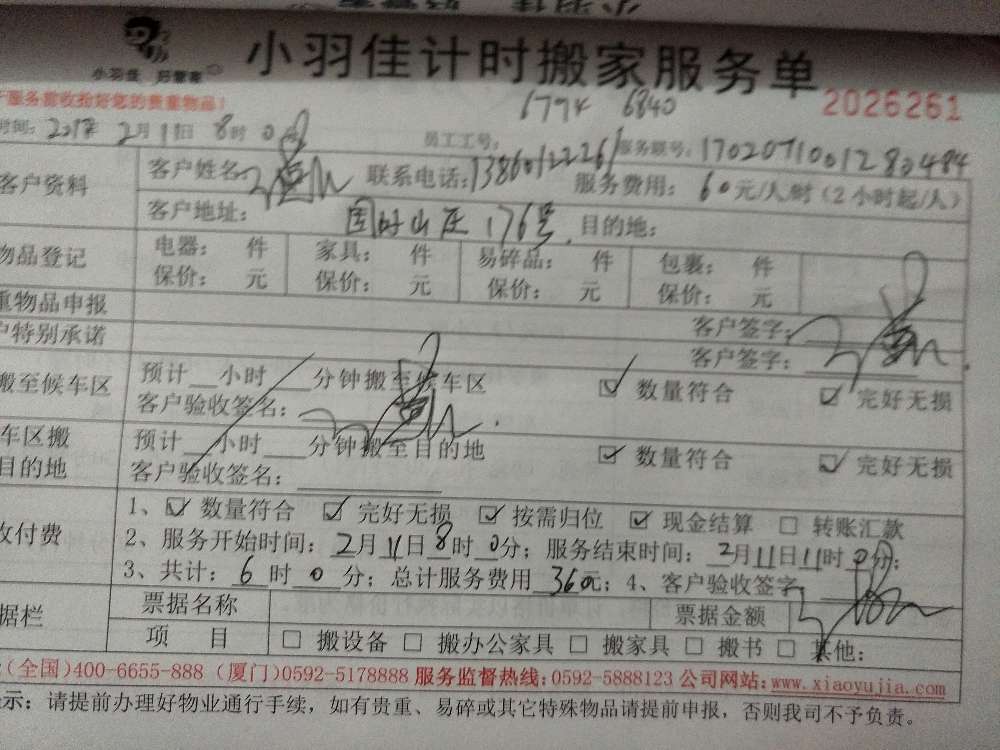 小羽佳 好管家
小羽佳计时搬家服务单
服务前收拾好您的贵重物品!
2026261
6794 6840
时间: 2017年2月11日8时0分
员工工号:
服务联号: 1702071001280484
客户资料
客户姓名
联系电话:13860122261
服务费用: 60元/人/时(2小时起/人)
客户地址: 国贸山庄176号
目的地:
物品登记
电器: 件 家具: 件 易碎品: 件 包裹: 件
保价: 元 保价: 元 保价: 元 保价: 元
重物品申报
客户签字:
户特别承诺
客户签字:
搬至候车区
预计__小时___分钟搬至候车区
数量符合 完好无损
客户验收签名:
车区搬
目的地
预计__小时___分钟搬至目的地
数量符合 完好无损
客户验收签名:
收付费
1、☑ 数量符合 ☑ 完好无损 ☑ 按需归位 ☑ 现金结算 □ 转账汇款
2、服务开始时间:2月11日8时0分;服务结束时间:2月11日11时0分;
3、共计:6时0分;总计服务费用360元;4、客户验收签字
据栏
票据名称 票据金额
项 目 □ 搬设备 □ 搬办公家具 □ 搬家具 □ 搬书 □ 其他:
(全国)400-6655-888 (厦门)0592-5178888 服务监督热线:0592-5888123 公司网站:www.xiaoyujia.com
示:请提前办理好物业通行手续,如有贵重、易碎或其它特殊物品请提前申报,否则我司不予负责。